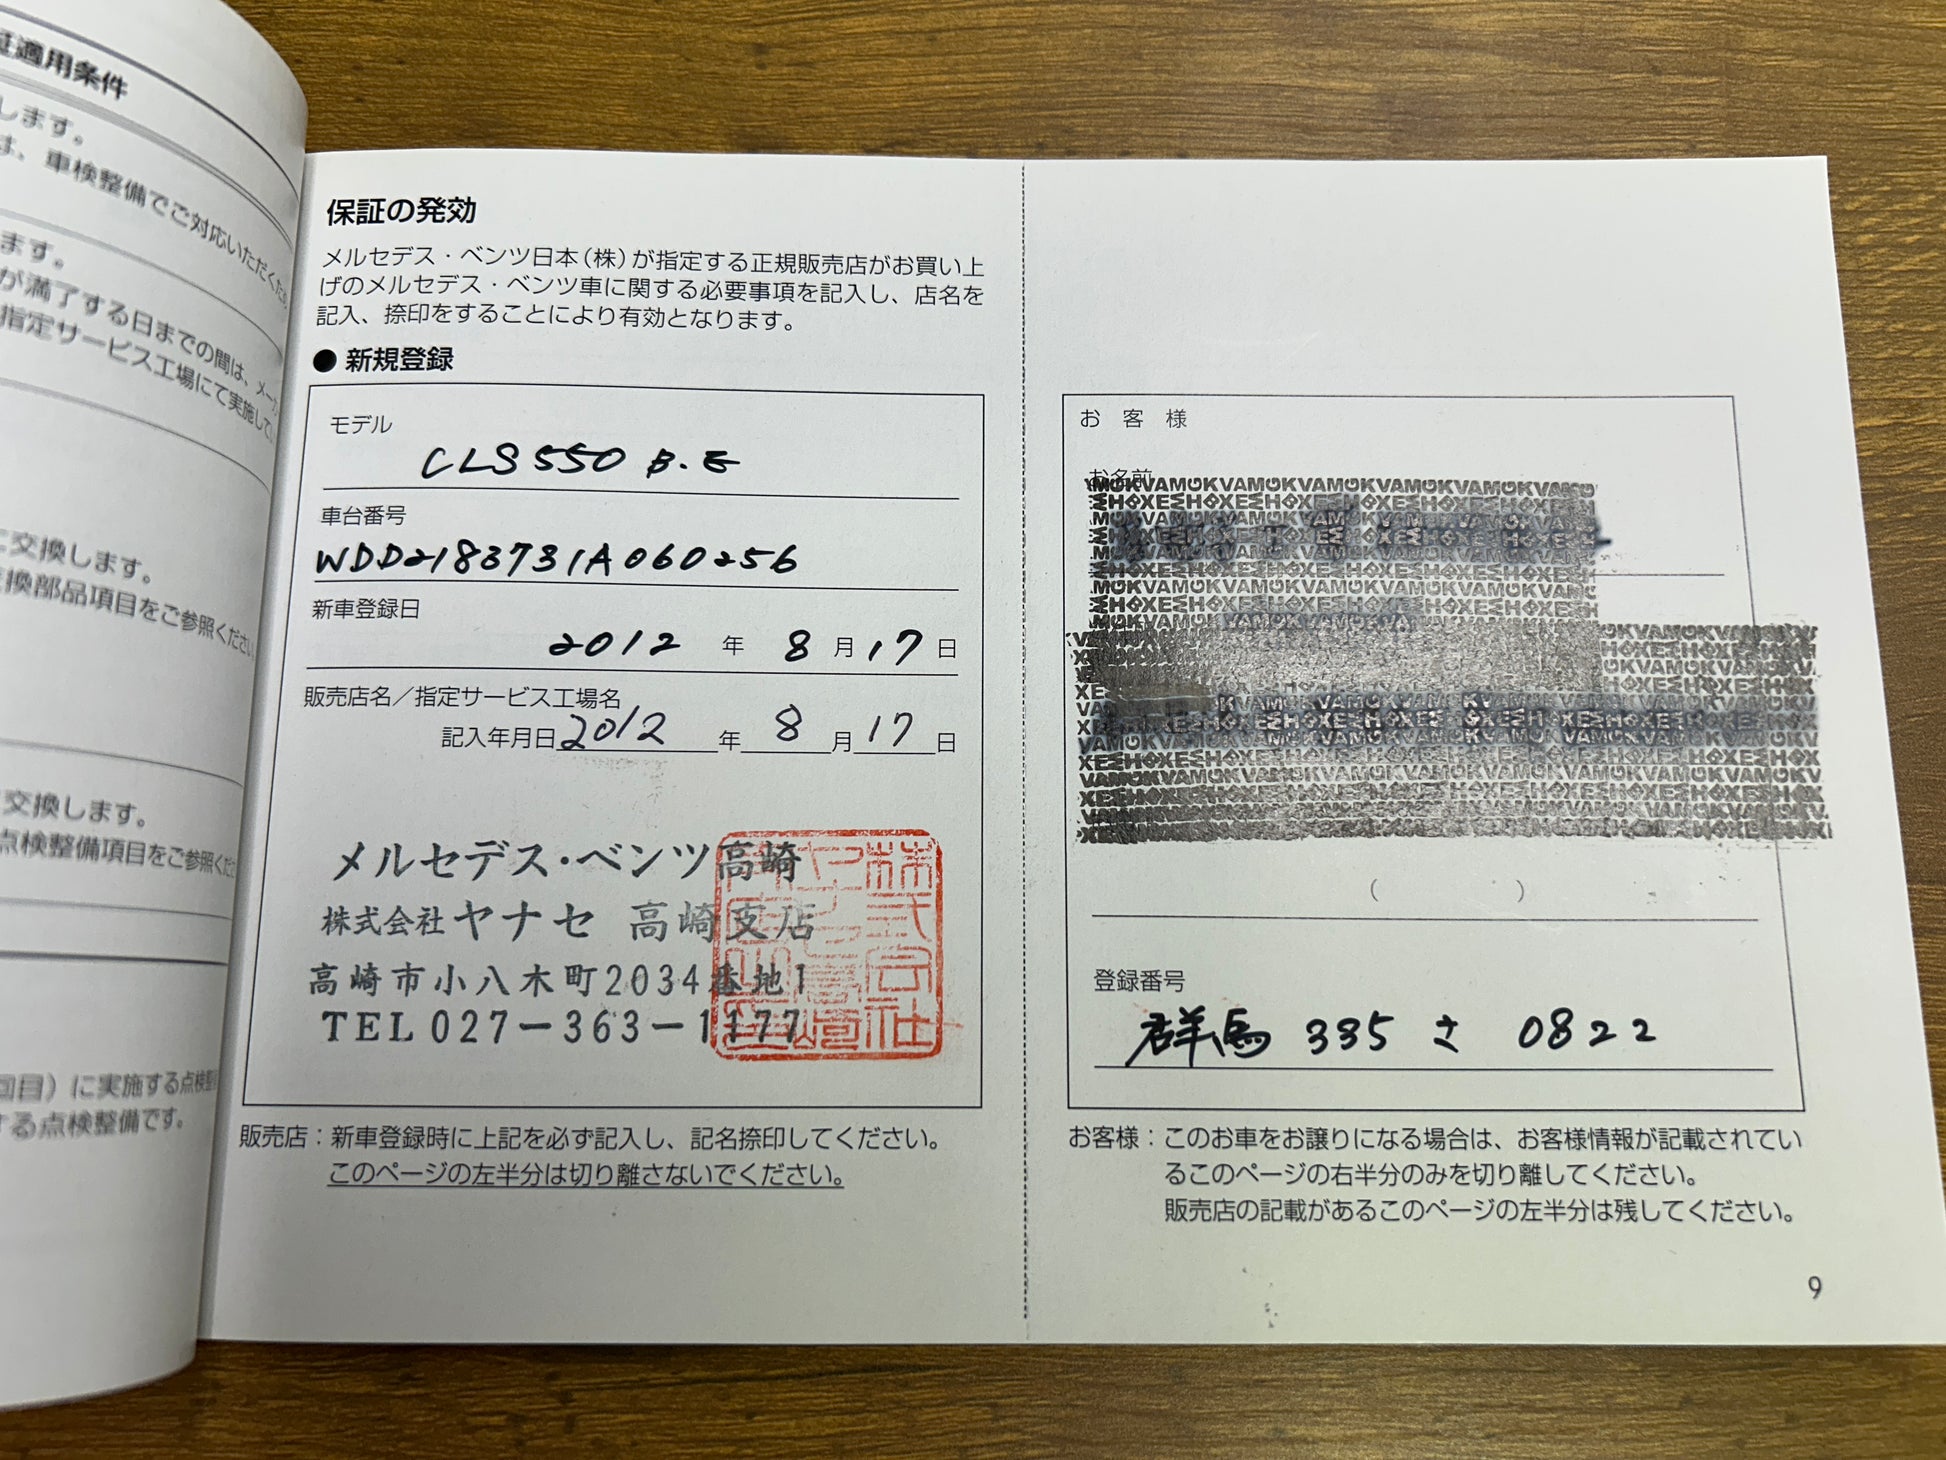 適用条件
します。
は、車検整備でご対応いただくか
ます。
が満了する日までの間は、メーカ
指定サービス工場にて実施して
に交換します。
交換部品項目をご参照ください。
交換します。
点検整備項目をご参照くだ
回目）に実施する点検整
する点検整備です。
保証の発効
メルセデス・ベンツ日本（株）が指定する正規販売店がお買い上
げのメルセデス・ベンツ車に関する必要事項を記入し、店名を
記入、捺印をすることにより有効となります。
● 新規登録
モデル
CLS550 B.E
車台番号
WDD2183731A060256
新車登録日
2012 年 8 月 17 日
販売店名／指定サービス工場名
記入年月日 2012 年 8 月 17 日
メルセデス・ベンツ高崎
株式会社ヤナセ 高崎支店
高崎市小八木町2034番地1
TEL 027-363-1177
販売店：新車登録時に上記を必ず記入し、記名捺印してください。
このページの左半分は切り離さないでください。
お客様
お名前
（ ）
登録番号
群馬 335 さ 0822
お客様：このお車をお譲りになる場合は、お客様情報が記載されてい
るこのページの右半分のみを切り離してください。
販売店の記載があるこのページの左半分は残してください。
9